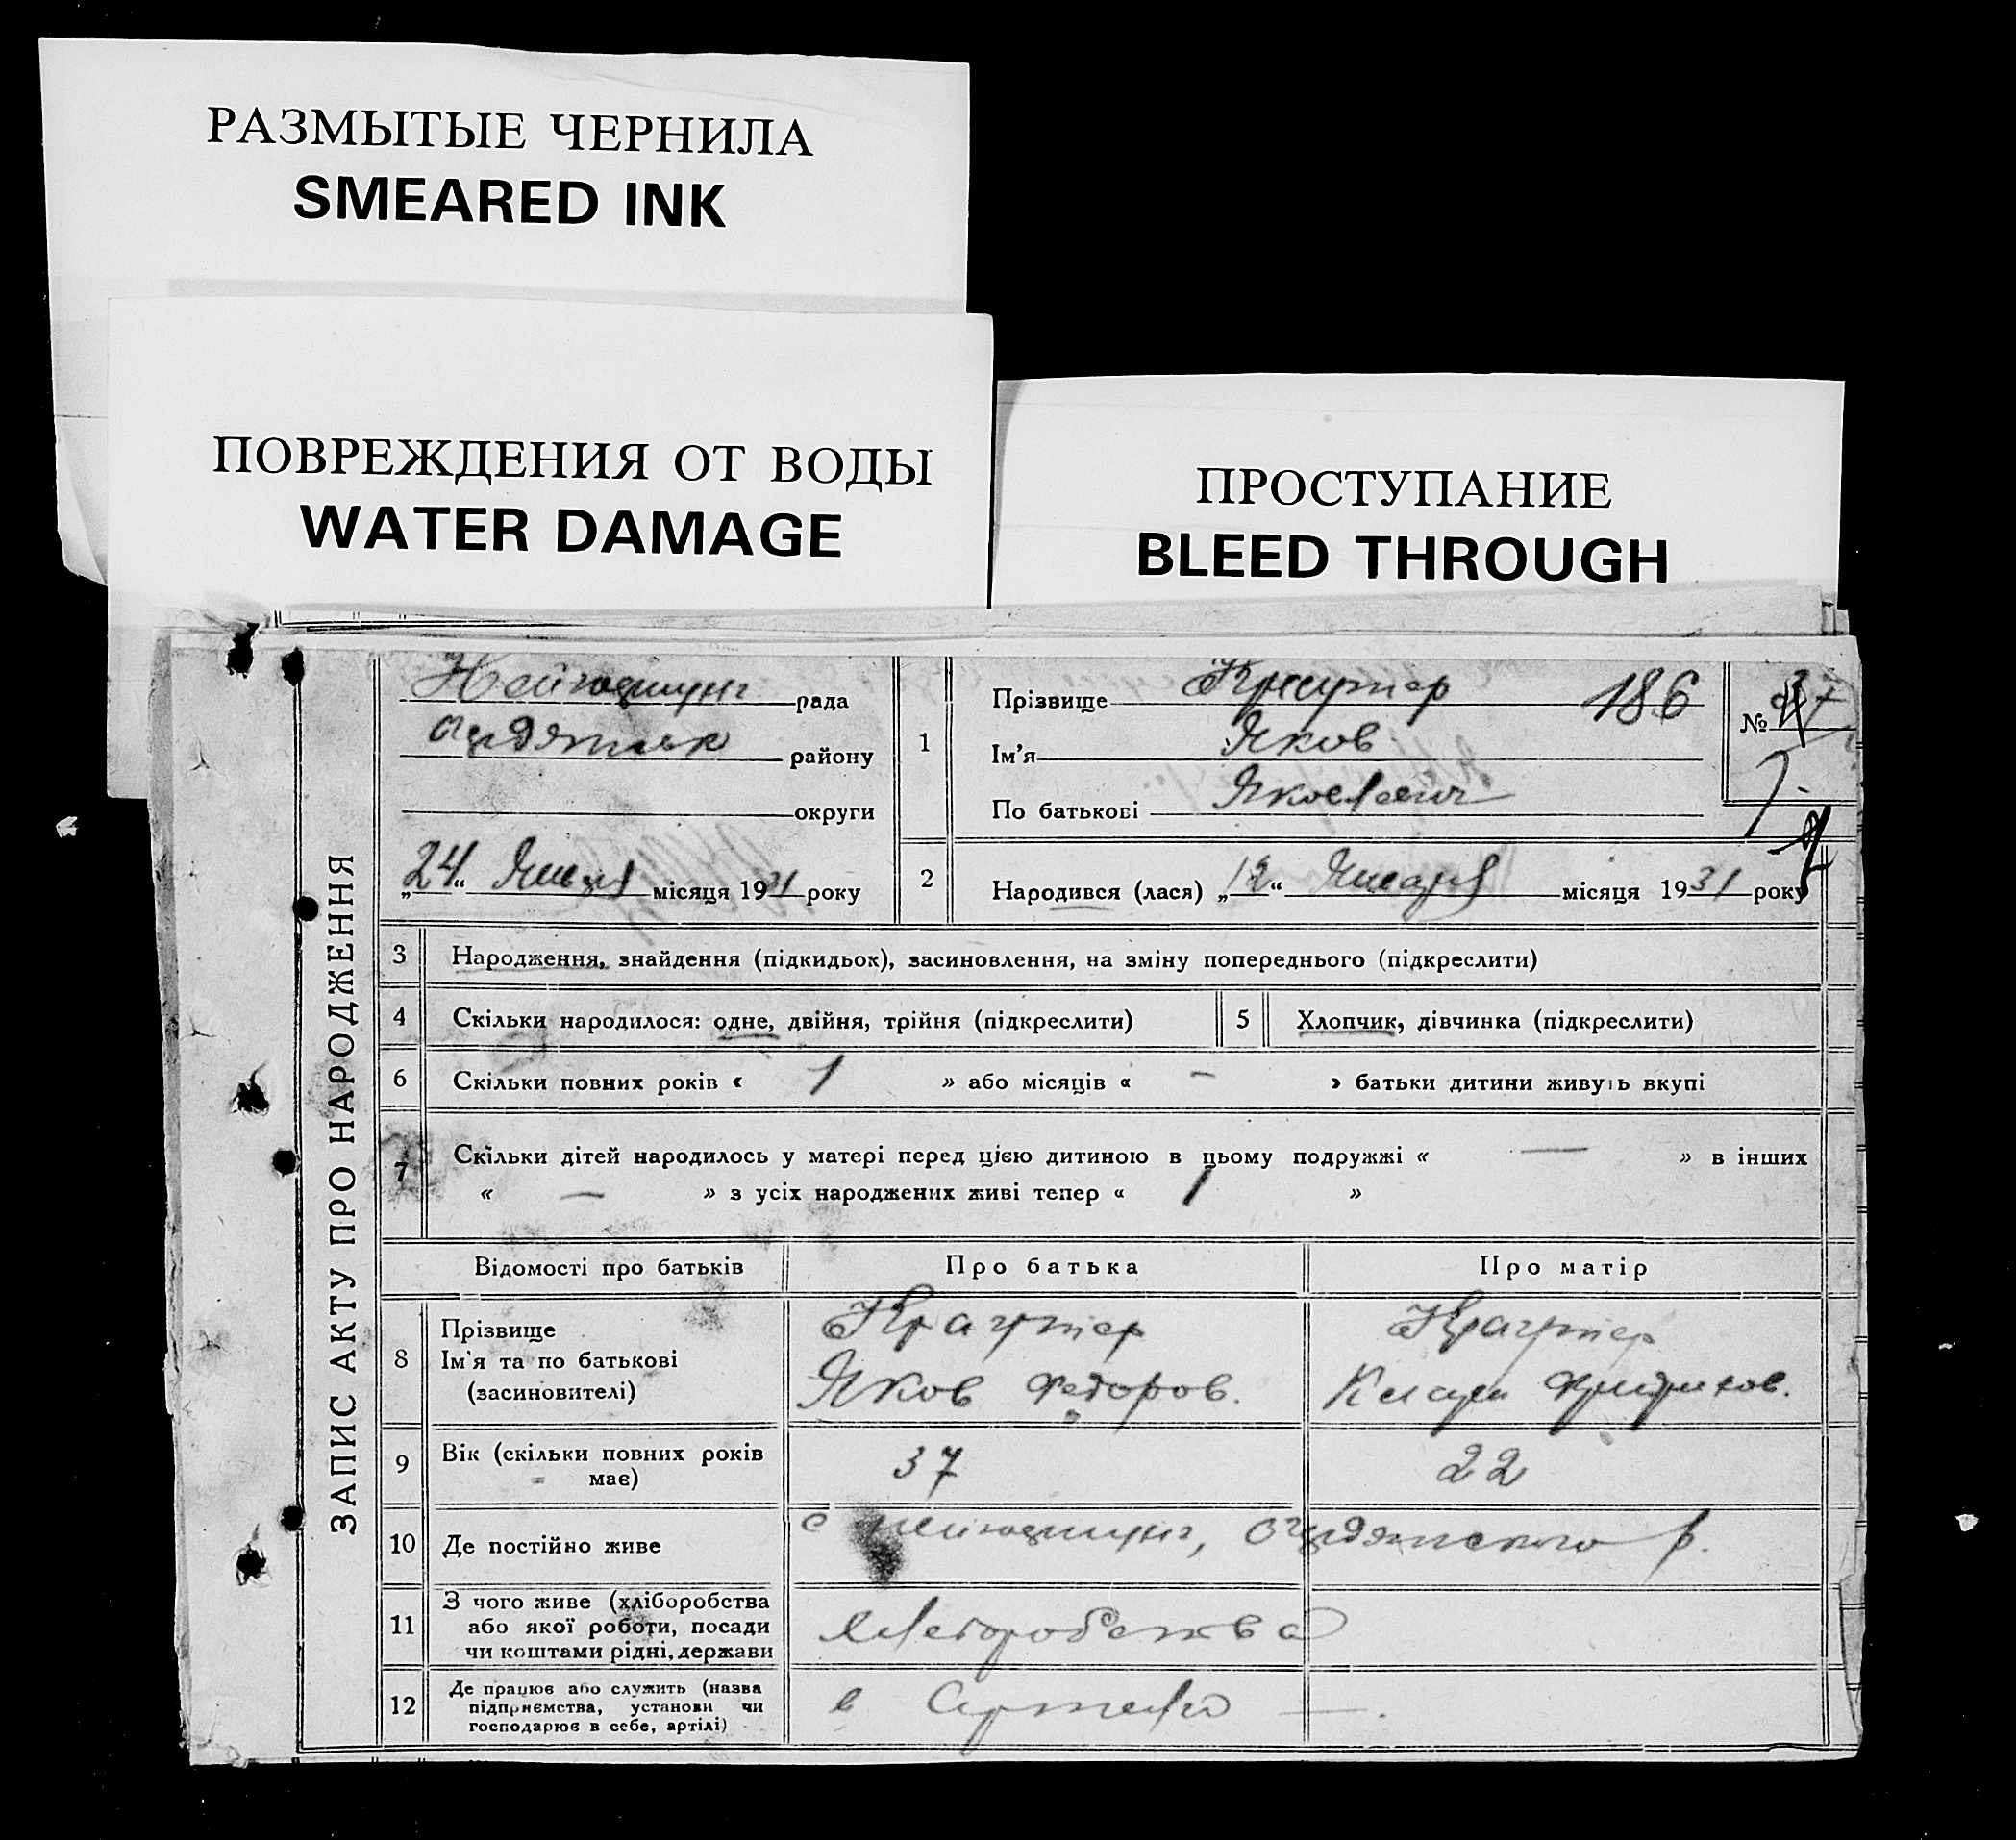 РАЗМЫТЫЕ ЧЕРНИЛА
SMEARED INK
ПОВРЕЖДЕНИЯ ОТ ВОДЫ
WATER DAMAGE
ПРОСТУПАНИЕ
BLEED THROUGH
ЗАПИС АКТУ ПРО НАРОДЖЕННЯ
рада
району
округи
„24“ Января місяця 1931 року
1
Прізвище Краутер 186
Ім'я Яков
По батькові Яковлевич
№
2
Народився (лася) „12“ Января місяця 1931 року
3 Народження, знайдення (підкидьок), засиновлення, на зміну попереднього (підкреслити)
4 Скільки народилося: одне, двійня, трійня (підкреслити)
5 Хлопчик, дівчинка (підкреслити)
6 Скільки повних років « 1 » або місяців « – » батьки дитини живуть вкупі
7 Скільки дітей народилось у матері перед цією дитиною в цьому подружжі « — » в інших
« — » з усіх народжених живі тепер « 1 »
Відомості про батьків Про батька Про матір
8
Прізвище Краутер Краутер
Ім'я та по батькові
(засиновителі)
Яков Федоров.
9 Вік (скільки повних років має) 37 22
10 Де постійно живе
с р.
11 З чого живе (хліборобства
або якої роботи, посади
чи коштами рідні, держави
12 Де працює або служить (назва
підприємства, установи чи
господарює в себе, артілі)
в Артели —.